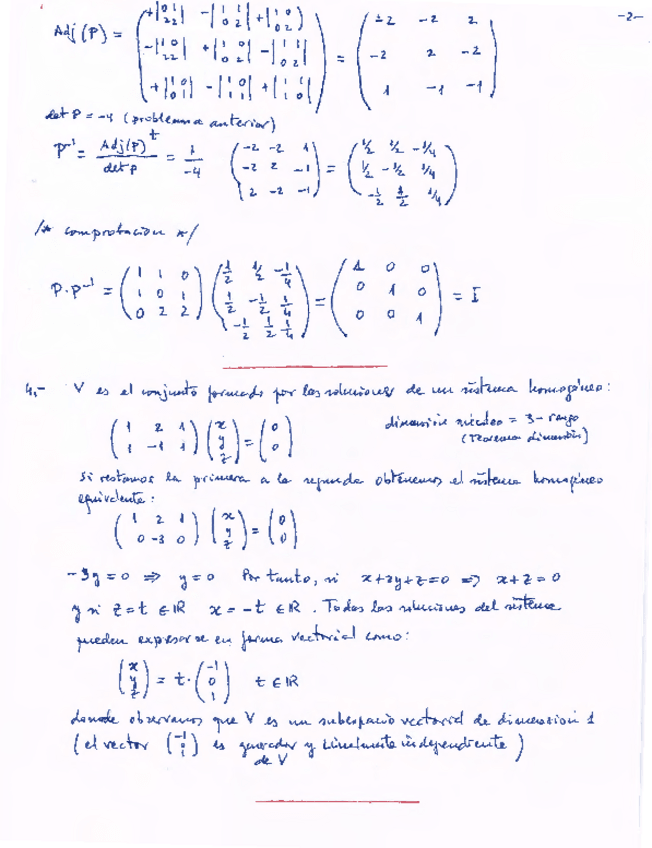 -2-
Adj(P) = ( +|0 1; 2 2| -|1 1; 0 2| +|1 0; 0 2| ; -|1 0; 2 2| +|1 0; 0 2| -|1 1; 0 2| ; +|1 0; 0 1| -|1 0; 1 1| +|1 1; 1 0| ) = ( -2 -2 2 ; -2 2 -2 ; 1 -1 -1 )
det P = -4 (problema anterior)
P⁻¹ = Adj(P)ᵗ / det P = 1/-4 ( -2 -2 1 ; -2 2 -1 ; 2 -2 -1 ) = ( 1/2 1/2 -1/4 ; 1/2 -1/2 1/4 ; -1/2 1/2 1/4 )
/* comprobacion */
P·P⁻¹ = ( 1 1 0 ; 1 0 1 ; 0 2 2 ) ( 1/2 1/2 -1/4 ; 1/2 -1/2 1/4 ; -1/2 1/2 1/4 ) = ( 1 0 0 ; 0 1 0 ; 0 0 1 ) = I
4.- V es el conjunto formado por las soluciones de un sistema homogéneo:
( 1 2 1 ; 1 -1 1 ) ( x ; y ; z ) = ( 0 ; 0 )
dimensión núcleo = 3 - rango
(Teorema dimensión)
Si restamos la primera a la segunda obtenemos el sistema homogéneo
equivalente:
( 1 2 1 ; 0 -3 0 ) ( x ; y ; z ) = ( 0 ; 0 )
-3y = 0 ⇒ y = 0 Por tanto, si x+2y+z=0 ⇒ x+z=0
y si z=t ∈ ℝ x=-t ∈ ℝ. Todas las soluciones del sistema
pueden expresarse en forma vectorial como:
( x ; y ; z ) = t · ( -1 ; 0 ; 1 ) t ∈ ℝ
donde observamos que V es un subespacio vectorial de dimensión 1
(el vector ( -1 ; 0 ; 1 ) es generador y linealmente independiente)
de V